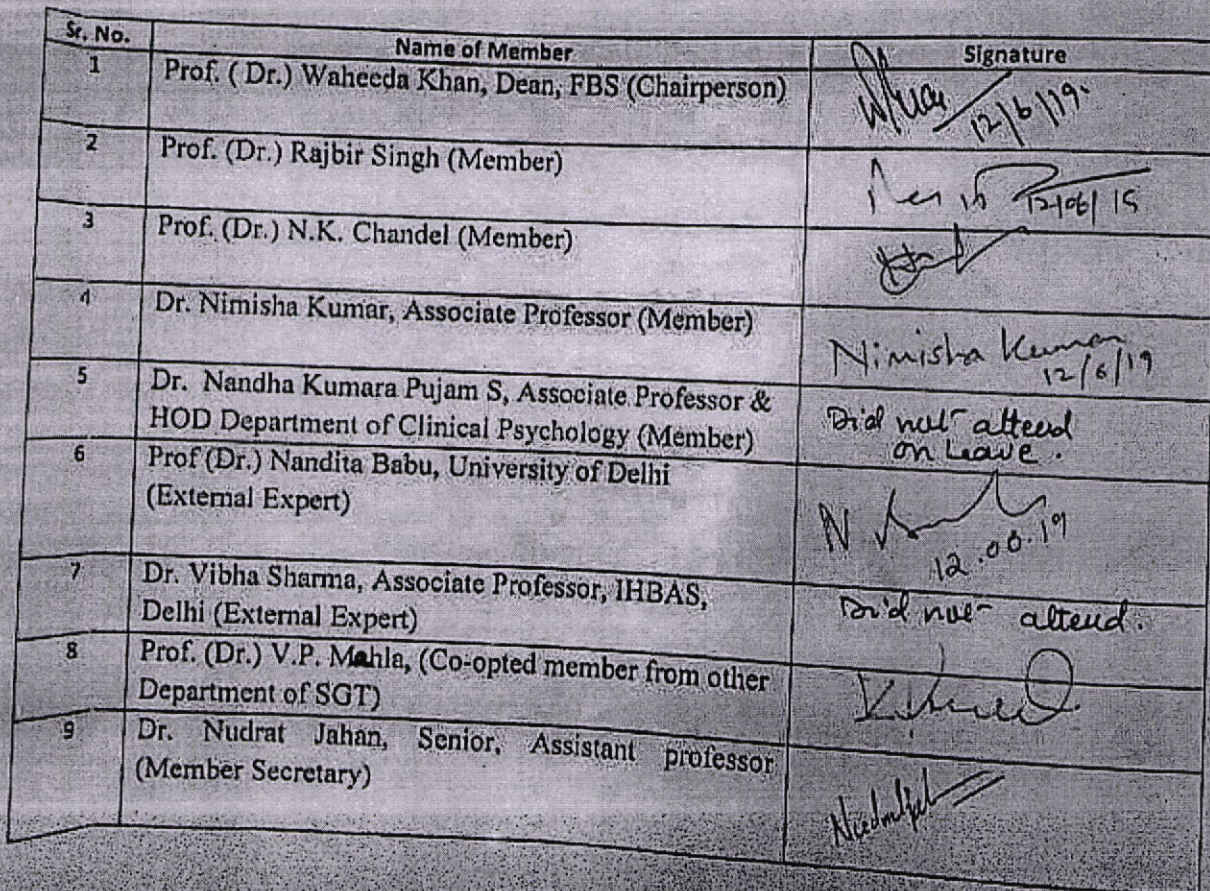 Sr. No. Name of Member Signature
1 Prof. ( Dr.) Waheeda Khan, Dean, FBS (Chairperson)
12/6/19.
2 Prof. (Dr.) Rajbir Singh (Member)
3 Prof. (Dr.) N.K. Chandel (Member)
4 Dr. Nimisha Kumar, Associate Professor (Member)
Nimisha Kumar
12/6/19
5 Dr. Nandha Kumara Pujam S, Associate Professor &
HOD Department of Clinical Psychology (Member)
Did not attend
on Leave.
6 Prof (Dr.) Nandita Babu, University of Delhi
(External Expert)
N
7 Dr. Vibha Sharma, Associate Professor, IHBAS,
Delhi (External Expert)
Did not attend.
8 Prof. (Dr.) V.P. Mahla, (Co-opted member from other
Department of SGT)
9 Dr. Nudrat Jahan, Senior, Assistant professor
(Member Secretary)